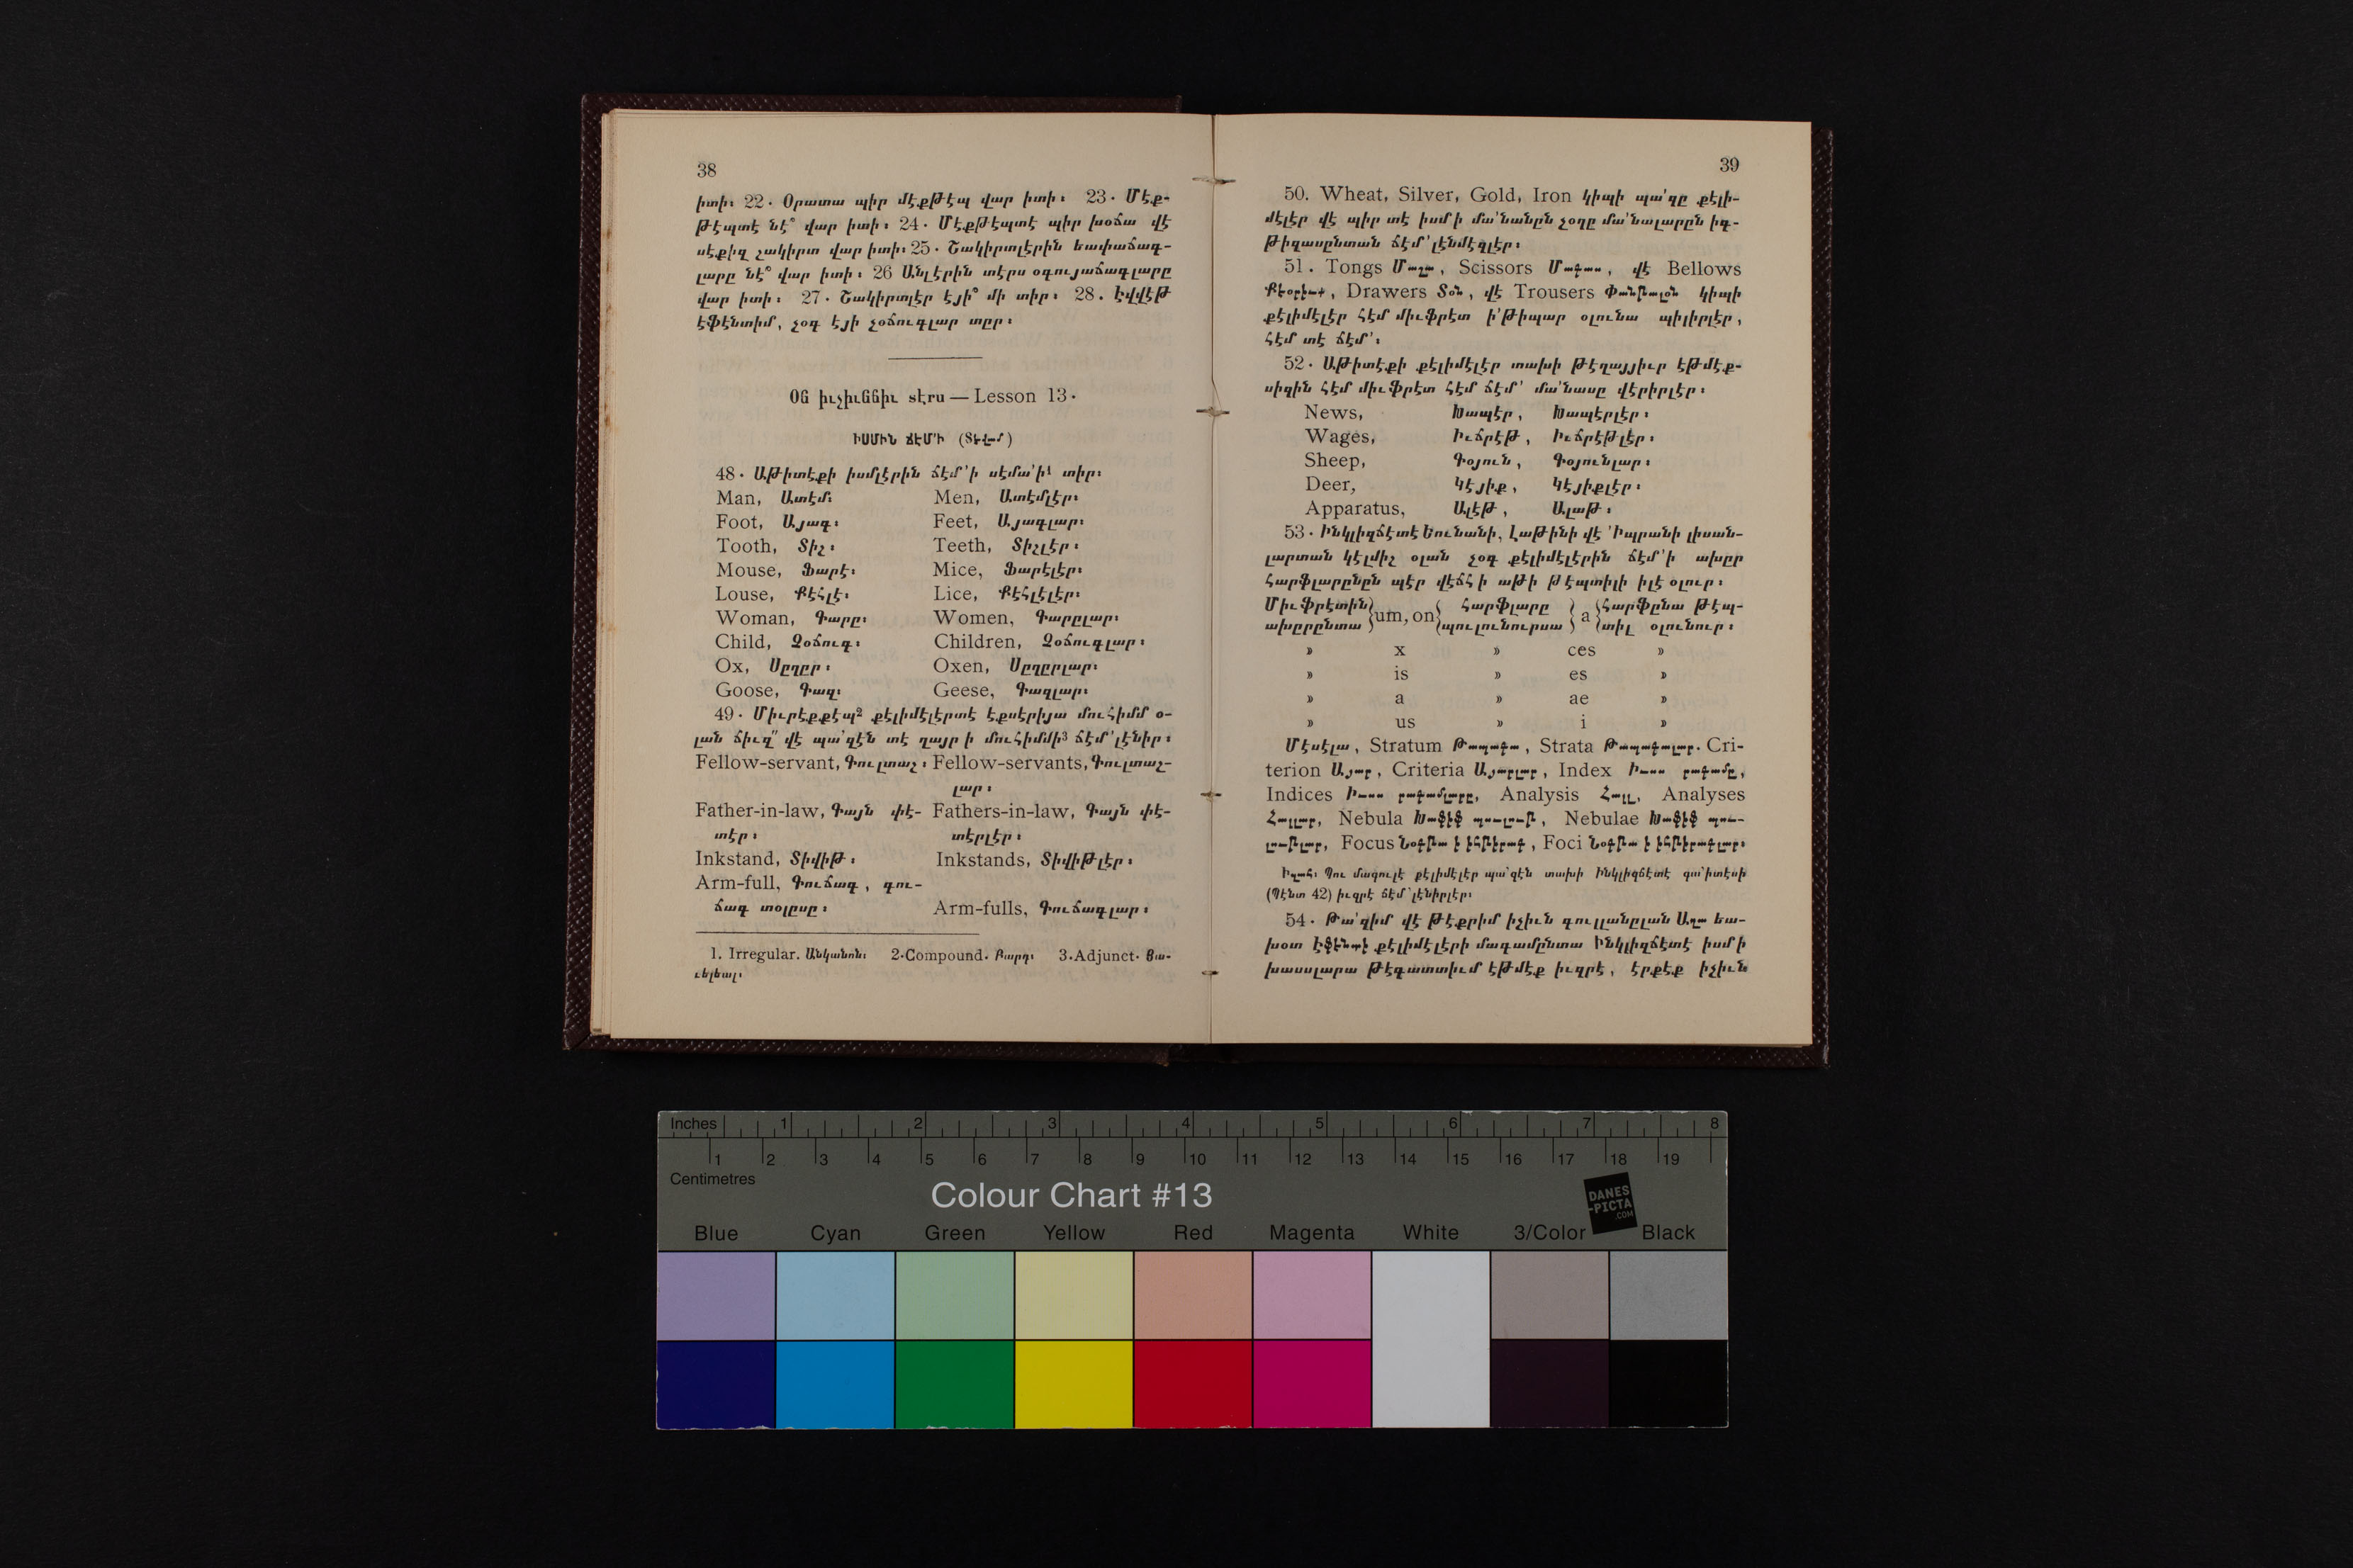 38
իտի։ 22. Օրատա պիր մէքթէպ վար իտի։ 23. Մէք-
թէպտէ նէ՞ վար իտի։ 24. Մէքթէպտէ պիր խօճա վէ
սէքիզ չակիրտ վար իտի։ 25. Շակիրտլէրին եափաճագ-
լարը նէ՞ վար իտի։ 26 Անլէրին տէրս օգույաճագլարը
վար իտի։ 27. Շակիրտլէր էյի՞ մի տիր։ 28. Էվվէթ
էֆէնտիմ, չօգ էյի չօճուգլար տըր։
Օն իւչիւննիւ տէրս — Lesson 13.
ԻՍՄԻՆ ՃԷՄ՚Ի (Տէվամ)
48. Աթիտէքի իսմլէրին ճէմ՚ի սէմա՚ի¹ տիր։
Man, Ատէմ։ Men, Ատէմլէր։
Foot, Այագ։ Feet, Այագլար։
Tooth, Տիշ։ Teeth, Տիշլէր։
Mouse, Ֆարէ։ Mice, Ֆարէլէր։
Louse, Քէհլէ։ Lice, Քէհլէլէր։
Woman, Գարը։ Women, Գարըլար։
Child, Չօճուգ։ Children, Չօճուգլար։
Ox, Սըղըր։ Oxen, Սըղըրլար։
Goose, Գազ։ Geese, Գազլար։
49. Միւրէքքէպ² քէլիմէլէրտէ էքսէրիյա մուհիմմ օ-
լան ճիւզ՚՚ վէ պա՚զէն տէ ղայր ի մուհիմմի³ ճէմ՚լէնիր։
Fellow-servant, Գուլտաշ։ Fellow-servants, Գուլտաշ-
լար։
Father-in-law, Գայն փէ- Fathers-in-law, Գայն փէ-
տէր։ տէրլէր։
Inkstand, Տիվիթ։ Inkstands, Տիվիթլէր։
Arm-full, Գուճագ, գու-
ճագ տօլըսը։ Arm-fulls, Գուճագլար։
1. Irregular. Անկանոն։ 2.Compound. Բարդ։ 3.Adjunct. Յա-
ւելեալ։
39
50. Wheat, Silver, Gold, Iron կիպի պա՚զը քէլի-
մէլէր վէ պիր տէ իսմ ի մա՚նանըն չօղը մա՚նալարըն իգ-
թիզասընտան ճէմ՚լէնմէզլէր։
51. Tongs Մաշա, Scissors Մագաս, վէ Bellows
Քէօրիւք, Drawers Տօն, վէ Trousers Փանթալօն կիպի
քէլիմէլէր հէմ միւֆրէտ ի՚թիպար օլունա պիլիրլէր,
հէմ տէ ճէմ՚։
52. Աթիտէքի քէլիմէլէր տախի թէղայյիւր էթմէք-
սիզին հէմ միւֆրէտ հէմ ճէմ՚ մա՚նասը վէրիրլէր։
News, Խապէր, Խապէրլէր։
Wages, Իւճրէթ, Իւճրէթլէր։
Sheep, Գօյուն, Գօյունլար։
Deer, Կէյիք, Կէյիքլէր։
Apparatus, Ալէթ, Ալաթ։
53. Ինկլիզճէտէ Եունանի, Լաթինի վէ ՚Իպրանի լիսան-
լարտան կէլմիշ օլան չօգ քէլիմէլէրին ճէմ՚ի ախըր
հարֆլարընըն պէր վէճհ ի աթի թէպտիլի իլէ օլուր։
Միւֆրէտին um, on հարֆլարը a հարֆընա թէպ-
ախըրընտա պուլունուրսա տիլ օլունուր։
» x » ces »
» is » es »
» a » ae »
» us » i »
Մէսէլա, Stratum Թապագա, Strata Թապագալար. Cri-
terion Այար, Criteria Այարլար, Index Իւսս րագամը,
Indices Իւսս րագամլարը, Analysis Հալլ, Analyses
Հալլար, Nebula Խաֆիֆ պուլութ, Nebulae Խաֆիֆ պու-
լութլար, Focus Նօգթա ի իհթիրագ, Foci Նօգթա ի իհթիրագլար։
Իզահ։ Պու մագուլէ քէլիմէլէր պա՚զէն տախի Ինկլիզճէտէ գա՚իտէսի
(Պէնտ 42) իւզրէ ճէմ՚լէնիրլէր։
54. Թա՚զիմ վէ թէքրիմ իչիւն գուլլանըլան Աղա եա-
խօտ Էֆէնտի քէլիմէլէրի մագամընտա Ինկլիզճէտէ իսմ ի
խասսլարա թէգատտիւմ էթմէք իւզրէ, էրքէք իչիւն
Inches 1 2 3 4 5 6 7 8
1 2 3 4 5 6 7 8 9 10 11 12 13 14 15 16 17 18 19
Centimetres
Colour Chart #13
DANES
-PICTA
.COM
Blue Cyan Green Yellow Red Magenta White 3/Color Black